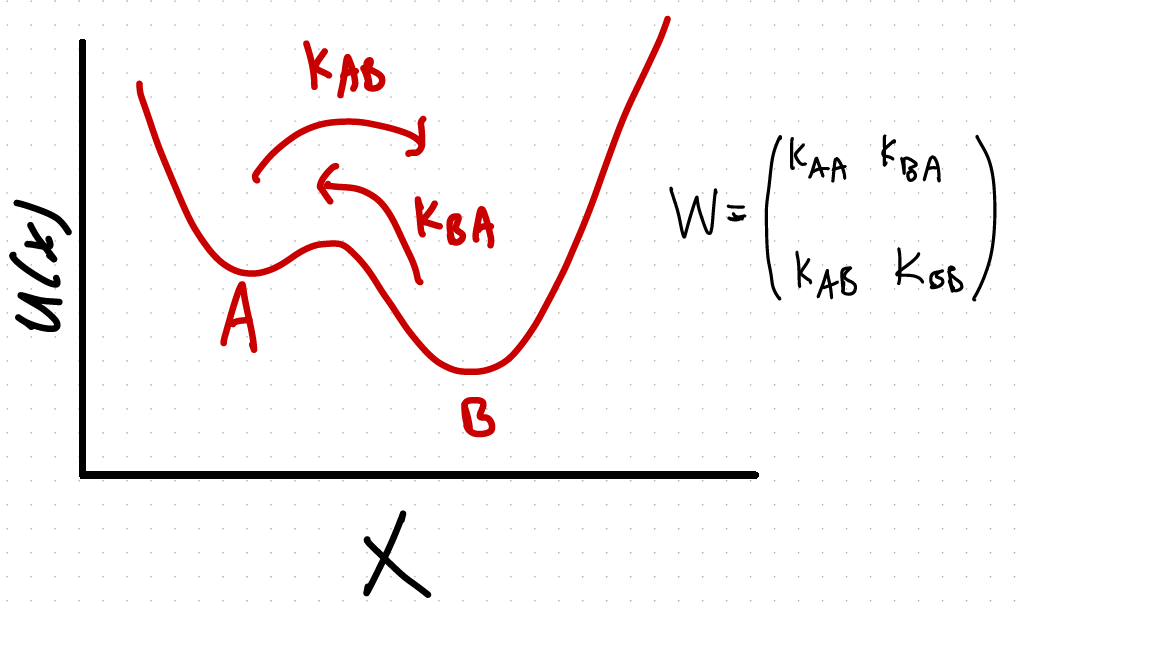 K_AB
K_BA
U(x)
A
B
X
W = ( K_AA K_BA
K_AB K_BB )